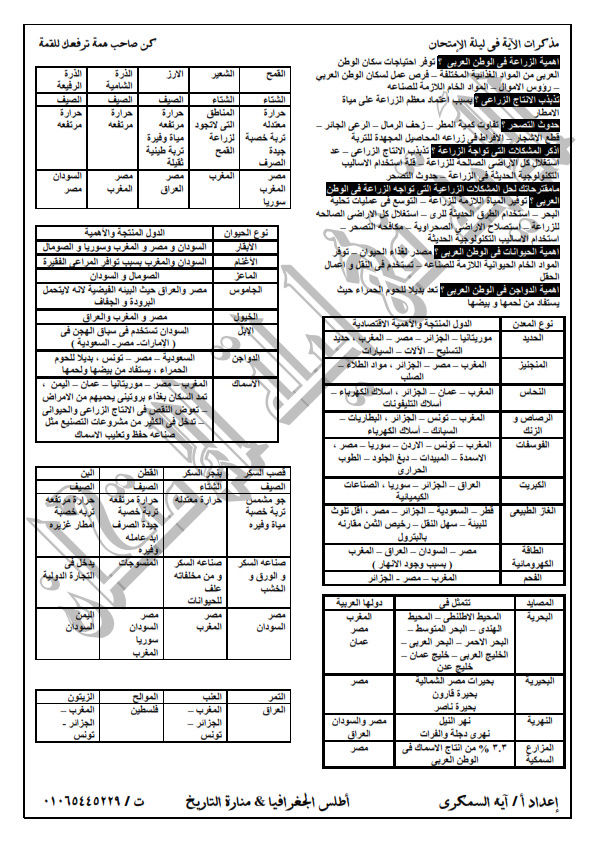 مذكرات الآية فى ليلة الإمتحان
كن صاحب همة ترفعك للقمة
اهمية الزراعة فى الوطن العربى ؟ توفر احتياجات سكان الوطن
العربى من المواد الغذائية المختلفة – فرص عمل لسكان الوطن العربي
– رؤوس الاموال – المواد الخام اللازمة للصناعه
تذبذب الانتاج الزراعى ؟ بسبب اعتماد معظم الزراعة على مياة
الامطار
حدوث التصحر ؟ تفاوت كمية المطر – زحف الرمال – الرعى الجائر –
قطع الاشجار – الافراط فى زراعه المحاصيل المجهدة للتربة
اذكر المشكلات التى تواجة الزراعة ؟ تذبذب الانتاج الزراعى – عد
استغلال كل الاراضى الصالحه للزراعة – قلة استخدام الاساليب
التكنولوجية الحديثة فى الزراعة – حدوث التصحر
مامقترحاتك لحل المشكلات الزراعية التى تواجه الزراعة فى الوطن
العربى ؟ توفير المياة اللازمة للزراعة – التوسع فى عمليات تحلية
البحر – استخدام الطرق الحديثة للرى – استغلال كل الاراضى الصالحه
للزراعة – استصلاح الاراضى الصحراوية – مكافحه التصحر –
استخدام الاساليب التكنولوجية الحديثة
اهمية الحيوانات فى الوطن العربى ؟ مصدر لغذاء الحيوان – توفر
المواد الخام الحيوانية اللازمة للصناعه – تستخدم فى النقل و اعمال
الحقل
اهمية الدواجن فى الوطن العربى ؟ تعد بديلا للحوم الحمراء حيث
يستفاد من لحمها و بيضها
نوع المعدن الدول المنتجة والأهمية الاقتصادية
الحديد موريتانيا – الجزائر – مصر – المغرب ، حديد
التسليح – الآلات – السيارات
المنجنيز المغرب – مصر – الجزائر ، مواد الطلاء –
الصلب
النحاس المغرب – عمان – الجزائر ، اسلاك الكهرباء –
أسلاك التليفونات
الرصاص و الزنك المغرب – تونس – الجزائر ، البطاريات –
السبائك – أسلاك الكهرباء
الفوسفات المغرب – تونس – الاردن – سوريا – مصر ،
الاسمدة – المبيدات – دبغ الجلود – الطوب
الحرارى
الكبريت العراق – الجزائر – سوريا ، الصناعات
الكيميائية
الغاز الطبيعى قطر – السعودية – الجزائر – مصر ، اقل تلوث
للبيئة – سهل النقل – رخيص الثمن مقارنه
بالبترول
الطاقة الكهرومائية مصر – السودان – العراق – المغرب
( بسبب وجود الانهار )
الفحم المغرب – مصر - الجزائر
المصايد تتمثل فى دولها العربية
البحرية المحيط الاطلنطى – المحيط المغرب
الهندى – البحر المتوسط – مصر
البحر الاحمر – البحر العربى – عمان
الخليج العربى – خليج عمان –
خليج عدن
البحيرية بحيرات مصر الشمالية مصر
بحيرة قارون
بحيرة ناصر
النهرية نهر النيل مصر والسودان
نهرى دجلة والفرات العراق
المزارع السمكية ٣.٣ % من انتاج الاسماك فى مصر
الوطن العربى
القمح الشعير الارز الذرة الشامية الذرة الرفيعة
الشتاء الشتاء الصيف الصيف الصيف
حرارة معتدله تربة خصبة جيدة الصرف
المناطق التى لاتجود لزراعة القمح
حرارة مرتفعه مياة وفيرة تربة طينية ثقيلة
حرارة مرتفعه
حرارة مرتفعه
مصر المغرب سوريا
المغرب
مصر العراق
مصر المغرب
السودان مصر
نوع الحيوان الدول المنتجة والأهمية
الابقار السودان و مصر و المغرب وسوريا و الصومال
الأغنام السودان والمغرب بسبب توافر المراعى الفقيرة
الماعز الصومال و السودان
الجاموس مصر والعراق حيث البيئه الفيضية لانه لايتحمل
البرودة و الجفاف
الخيول مصر و المغرب والعراق
الابل السودان تستخدم فى سباق الهجن فى
( الامارات- مصر- السعودية )
الدواجن السعودية – مصر – تونس ، بديلا للحوم
الحمراء ، يستفاد من بيضها ولحمها
الاسماك المغرب – مصر – موريتانيا – عمان – اليمن ،
تمد السكان بغذاء بروتينى يحميهم من الامراض
– تعوض النقص فى الانتاج الزراعى والحيوانى
– تدخل فى الكثير من مشروعات التصنيع مثل
صناعه حفظ وتعليب الاسماك
قصب السكر بنجر السكر القطن البن
الصيف الشتاء الصيف الصيف
جو مشمس تربة خصبة مياة وفيره
حرارة معتدلة
حرارة مرتفعة تربة خصبة جيدة الصرف ايد عامله وفيره
حرارة مرتفعه تربه خصبة امطار غزيره
صناعه السكر و الورق و الخشب
صناعه السكر و من مخلفاته علف للحيوانات
المنسوجات
يدخل فى التجارة الدولية
مصر السودان
مصر المغرب
مصر السودان سوريا المغرب
اليمن السودان
التمر العنب الموالح الزيتون
العراق
المغرب – الجزائر – تونس
فلسطين
المغرب – الجزائر - تونس
إعداد أ / آيه السمكرى
أطلس الجغرافيا & منارة التاريخ
ت / ٠١٠٦٥٤٤٥٢٢٩